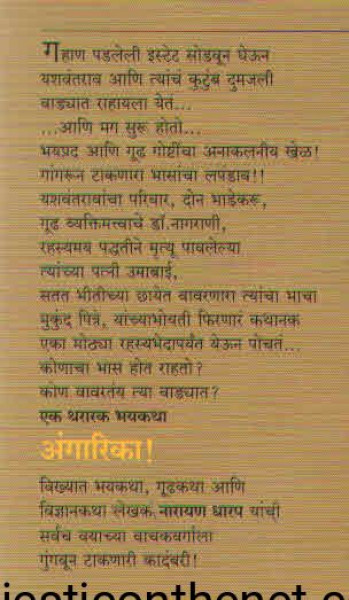 गहाण पडलेली इस्टेट सोडवून घेऊन
यशवंतराव आणि त्यांचं कुटुंब दुमजली
वाड्यात राहायला येतं...
...आणि मग सुरू होतो...
भयप्रद आणि गूढ गोष्टींचा अनाकलनीय खेळ!
गांगरून टाकणारा भासांचा लपंडाव!!
यशवंतरावांचा परिवार, दोन भाडेकरू,
गूढ व्यक्तिमत्त्वाचे डॉ.नागराणी,
रहस्यमय पद्धतीने मृत्यू पावलेल्या
त्यांच्या पत्नी उमाबाई,
सतत भीतीच्या छायेत वावरणारा त्यांचा भाचा
मुकुंद पित्रे, यांच्याभोवती फिरणारं कथानक
एका मोठ्या रहस्यभेदापर्यंत येऊन पोचतं...
कोणाचा भास होत राहतो?
कोण वावरतंय त्या वाड्यात?
एक थरारक भयकथा
अंगारिका!
विख्यात भयकथा, गूढकथा आणि
विज्ञानकथा लेखक नारायण धारप यांची
सर्वच वयाच्या वाचकवर्गाला
गुंगवून टाकणारी कादंबरी!